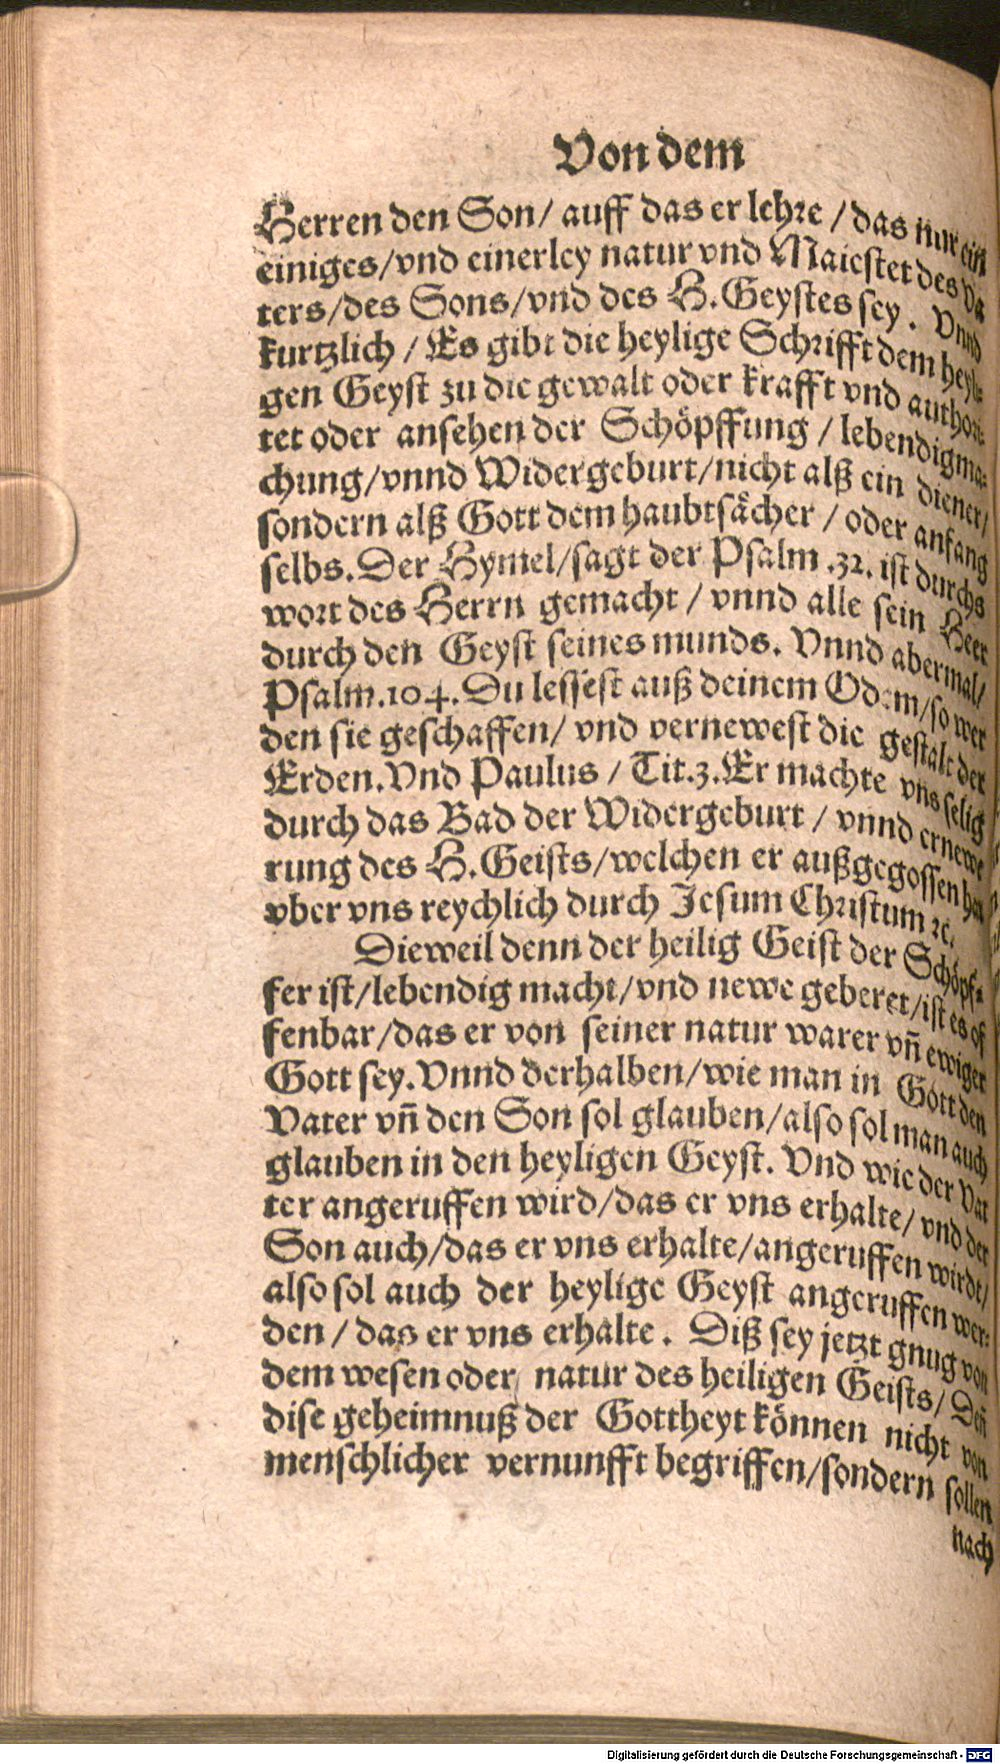 Von dem
Herren den Son/ auff das er lehre / das nur ein
einiges/vnd einerley natur vnd Maiestet des Va
ters/des Sons/vnd des H. Geystes sey . Vnnd
kurtzlich / Es gibt die heylige Schrifft dem heyli⸗
gen Geyst zu die gewalt oder krafft vnd authori⸗
tet oder ansehen der Schöpffung / lebendigma⸗
chung/vnnd Widergeburt/nicht alß ein diener/
sondern alß Gott dem haubtsächer / oder anfang
selbs. Der Hymel/sagt der Psalm .32. ist durchs
wort des Herrn gemacht / vnnd alle sein Heer
durch den Geyst seines munds. Vnnd abermal/
Psalm.104. Du lessest auß deinem Odem/so wer
den sie geschaffen/ vnd vernewest die gestalt der
Erden. Vnd Paulus / Tit.3. Er machte vns selig
durch das Bad der Widergeburt / vnnd ernewe
rung des H. Geists/welchen er außgegossen hat
vber vns reychlich durch Jesum Christum ꝛc.
Dieweil denn der heilig Geist der Schöpf⸗
fer ist/lebendig macht/vnd newe geberet/ist es of
fenbar/das er von seiner natur warer vñ ewiger
Gott sey. Vnnd derhalben/wie man in Gott den
Vater vñ den Son sol glauben/also sol man auch
glauben in den heyligen Geyst. Vnd wie der Vat
ter angeruffen wird/das er vns erhalte/ vnd der
Son auch/das er vns erhalte/angeruffen wirdt/
also sol auch der heylige Geyst angeruffen wer⸗
den / das er vns erhalte . Diß sey jetzt gnug von
dem wesen oder natur des heiligen Geists/ Deñ
dise geheimnuß der Gottheyt können nicht von
menschlicher vernunfft begriffen/sondern sollen
nach
Digitalisierung gefördert durch die Deutsche Forschungsgemeinschaft - DFG